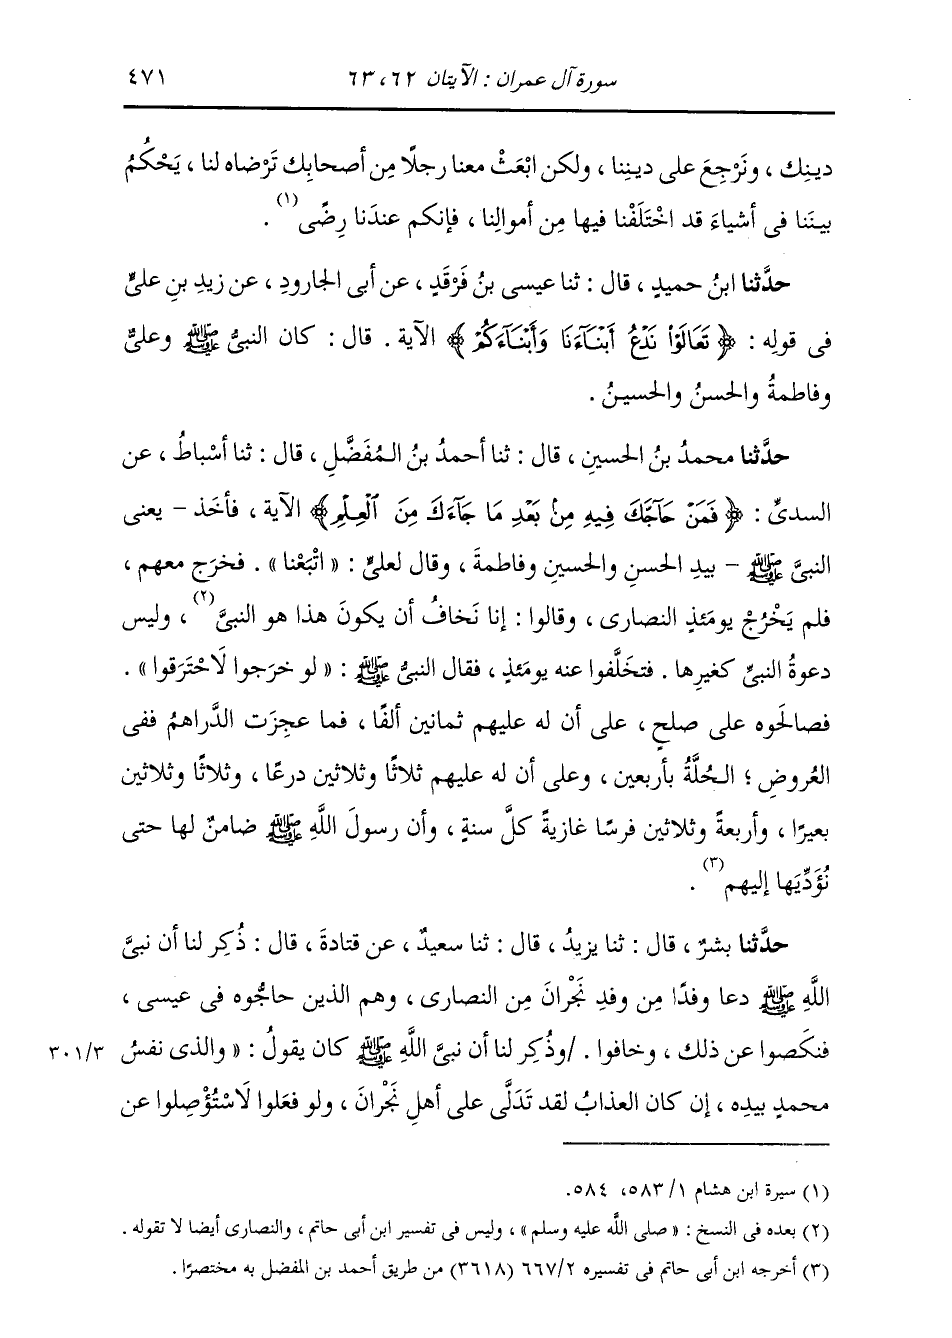 سورة آل عمران : الآيتان ٦٢ ، ٦٣ ٤٧١
دينِك ، ونَرْجِعَ على دينِنا ، ولكن ابْعَثْ معنا رجلًا مِن أصحابِك تَرْضاه لنا ، يَحْكُمُ
بينَنا فى أشياءَ قد اخْتَلَفْنا فيها مِن أموالِنا ، فإنكم عندَنا رِضًى (١) .
حدَّثنا ابنُ حميدٍ ، قال : ثنا عيسى بنُ فَرْقَدٍ ، عن أبى الجارودِ ، عن زيدِ بنِ علىٍّ
فى قولِه : ﴿ تَعَالَوْا نَدْعُ أَبْنَآءَنَا وَأَبْنَآءَكُمْ ﴾ الآية . قال : كان النبىُّ ﷺ وعلىٌّ
وفاطمةُ والحسنُ والحسينُ .
حدَّثنا محمدُ بنُ الحسينِ ، قال : ثنا أحمدُ بنُ المُفَضَّلِ ، قال : ثنا أسْباطُ ، عن
السدىِّ : ﴿ فَمَنْ حَآجَّكَ فِيهِ مِنۢ بَعْدِ مَا جَآءَكَ مِنَ ٱلْعِلْمِ ﴾ الآية ، فأخَذ - يعنى
النبىَّ ﷺ - بيدِ الحسنِ والحسينِ وفاطمةَ ، وقال لعلىٍّ : « اتْبَعْنا » . فخرَج معهم ،
فلم يَخْرُجْ يومَئذٍ النصارى ، وقالوا : إنا نَخافُ أن يكونَ هذا هو النبىَّ (٢) ، وليس
دعوةُ النبىِّ كغيرِها . فتخَلَّفوا عنه يومَئذٍ ، فقال النبىُّ ﷺ : « لو خرَجوا لَاحْتَرَقوا » .
فصالَحوه على صلحٍ ، على أن له عليهم ثمانين ألفًا ، فما عجِزَت الدَّراهمُ ففى
العُروضِ ؛ الحُلَّةُ بأربعين ، وعلى أن له عليهم ثلاثًا وثلاثين درعًا ، وثلاثًا وثلاثين
بعيرًا ، وأربعةً وثلاثين فرسًا غازيةً كلَّ سنةٍ ، وأن رسولَ اللَّهِ ﷺ ضامنٌ لها حتى
نُؤَدِّيَها إليهم (٣) .
حدَّثنا بشرٌ ، قال : ثنا يزيدُ ، قال : ثنا سعيدٌ ، عن قتادةَ ، قال : ذُكِر لنا أن نبىَّ
اللَّهِ ﷺ دعا وفدًا مِن وفدِ نَجْرانَ مِن النصارى ، وهم الذين حاجُّوه فى عيسى ،
فنكَصوا عن ذلك ، وخافوا . /وذُكِر لنا أن نبىَّ اللَّهِ ﷺ كان يقولُ : « والذى نفسُ ٣٠١/٣
محمدٍ بيدِه ، إن كان العذابُ لقد تَدَلَّى على أهلِ نَجْرانَ ، ولو فعَلوا لَاسْتُؤْصِلوا عن
(١) سيرة ابن هشام ١ / ٥٨٣، ٥٨٤.
(٢) بعده فى النسخ : « صلى اللَّه عليه وسلم » ، وليس فى تفسير ابن أبى حاتم ، والنصارى أيضا لا تقوله .
(٣) أخرجه ابن أبى حاتم فى تفسيره ٢ / ٦٦٧ (٣٦١٨) من طريق أحمد بن المفضل به مختصرًا .